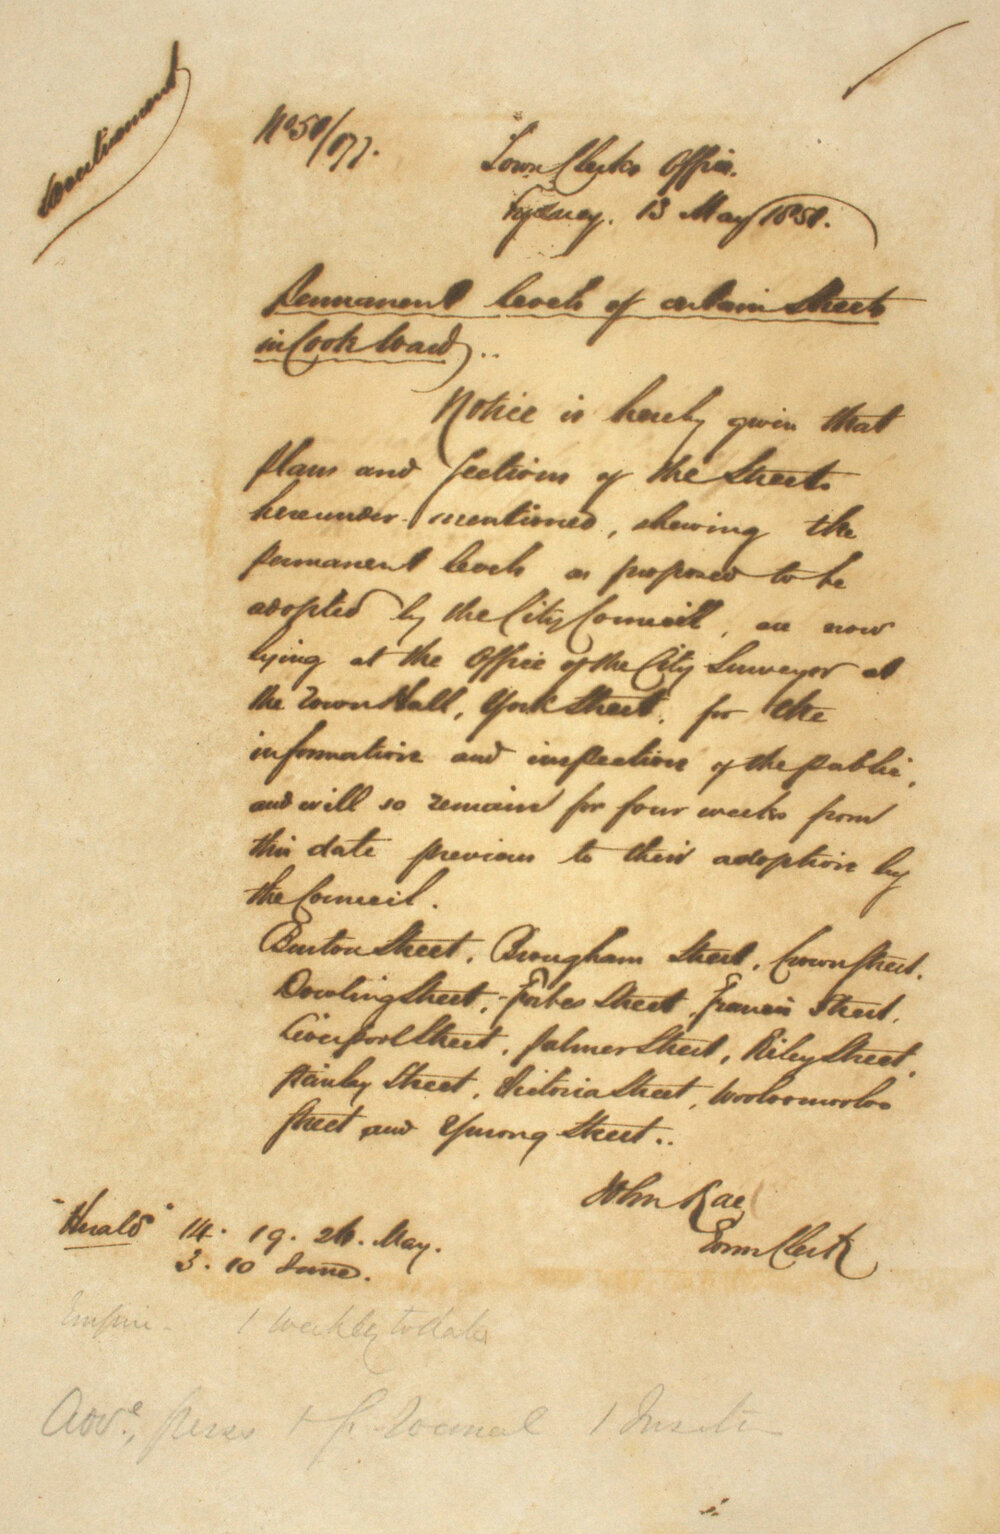 Advertisement
No 58/177.
Town Clerks Office.
Sydney. 13 May 1858.
Permanent levels of certain Streets
in Cook Ward.
Notice is hereby given that
plans and sections of the Streets
hereunder mentioned, shewing the
permanent levels as proposed to be
adopted by the City Council, are now
lying at the Office of the City Surveyor at
the Town Hall, York Street, for the
information and inspection of the public,
and will so remain for four weeks from
this date previous to their adoption by
the Council.
Burton Street, Brougham Street, Crown Street,
Dowling Street, Forbes Street, Francis Street,
Liverpool Street, Palmer Street, Riley Street,
Stanley Street, Victoria Street, Woolloomooloo
Street and Yurong Street..
John Rae
Town Clerk
"Herald" 14. 19. 26. May.
3. 10 June.
Empire - 1 Weekly to date